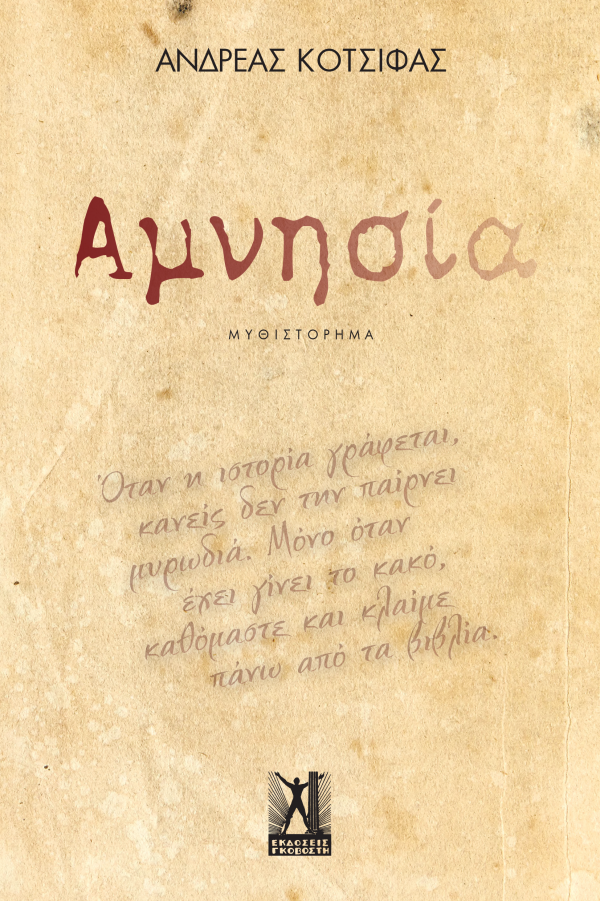 ΑΝΔΡΕΑΣ ΚΟΤΣΙΦΑΣ
Αμνησία
ΜΥΘΙΣΤΟΡΗΜΑ
Όταν η ιστορία γράφεται,
κανείς δεν την παίρνει
μυρωδιά. Μόνο όταν
έχει γίνει το κακό,
καθόμαστε και κλαίμε
πάνω από τα βιβλία.
ΕΚΔΟΣΕΙΣ
ΓΚΟΒΟΣΤΗ